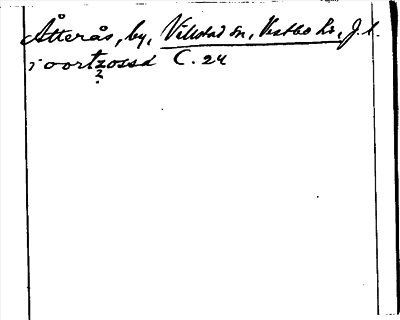 Åtterås, by, Villstad sn, Västbo hd, J. l.
i oortzossd C. 24
?